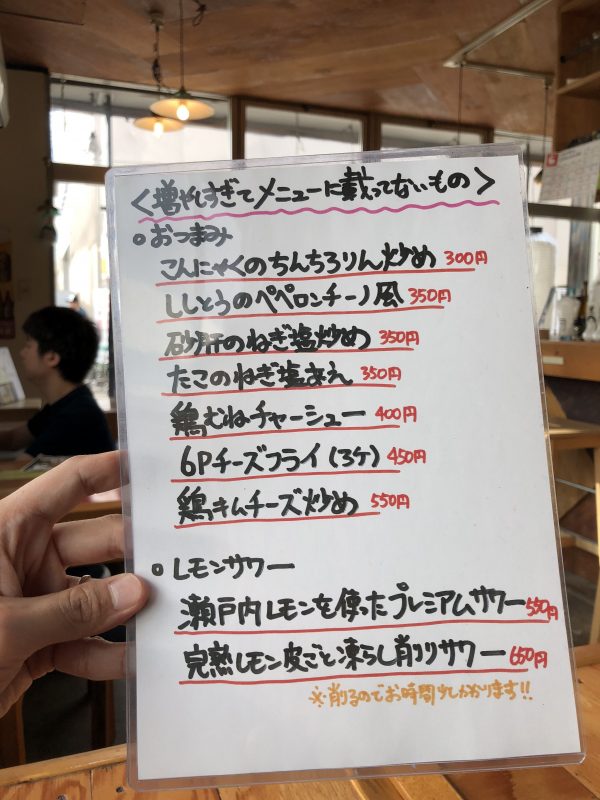 ＜増やしすぎてメニューに載ってないもの＞
○おつまみ
こんにゃくのちんちろりん炒め 300円
ししとうのペペロンチーノ風 350円
砂肝のねぎ塩炒め 350円
たこのねぎ塩まえ 350円
鶏むねチャーシュー 400円
6Pチーズフライ(3ケ) 450円
鶏キムチーズ炒め 550円
○レモンサワー
瀬戸内レモンを使ったプレミアムサワー 550円
完熟レモン皮ごと凍らし削りサワー 650円
※削るのでお時間少しかかります!!